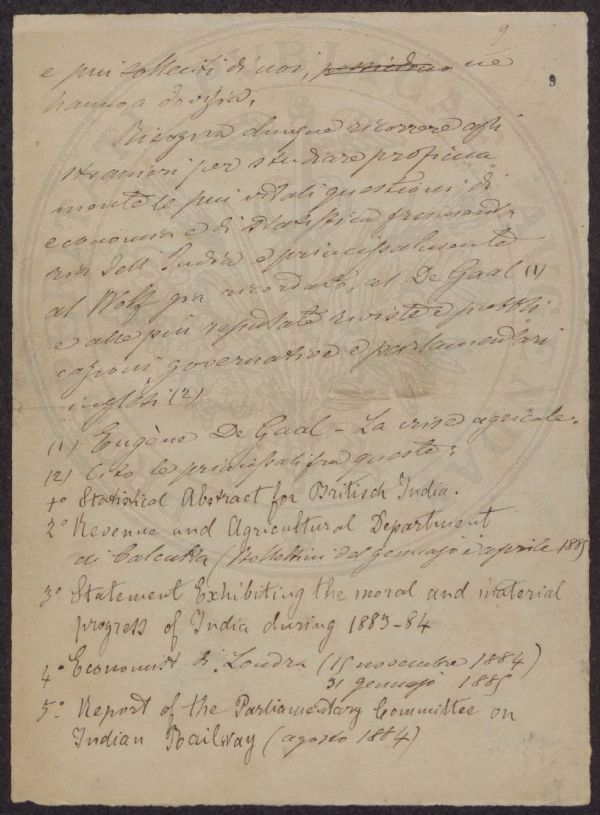 9
9
e più solleciti di noi, possiedono ne
hanno a dovizia.
Bisogna dunque ricorrere agli
stranieri per studiare proficua-
mente le più vitali questioni di
economia e di statistica frumenta
ria dell' India e principalmente
al Wolf già ricordato, al De Gaal (1)
e alle più reputate riviste e pubbli
cazioni governative e parlamentari
inglesi (2)
(1) Eugène De Gaal - La crise agricole.
(2) Cito le principali fra queste:
1° Statistical Abstract for Britisch India.
2° Revenue and Agricultural Department
di Calcutta (Bollettini dal gennajo a aprile 1885
3° Statement Exhibiting the moral and material
progress of India during 1883-84
4° Economist di Londra (15 novembre 1884)
31 gennajo 1885
5° Report of the Parliamentary Committee on
Indian Railway (agosto 1884)